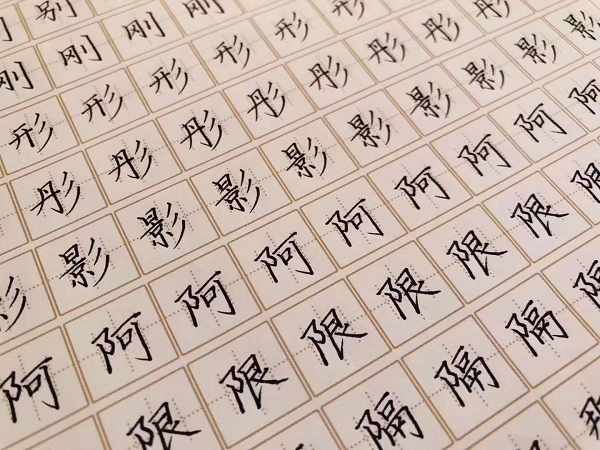 别
刚 刚 刚 刚
形 形 形 形 形 形
彤 彤 彤 彤 彤 彤 彤 彤
影 影 影 影 影 影 影 影 影 影
阿 阿 阿 阿 阿 阿 阿 阿 阿
限 限 限 限 限 限 限
隔 隔 隔 隔